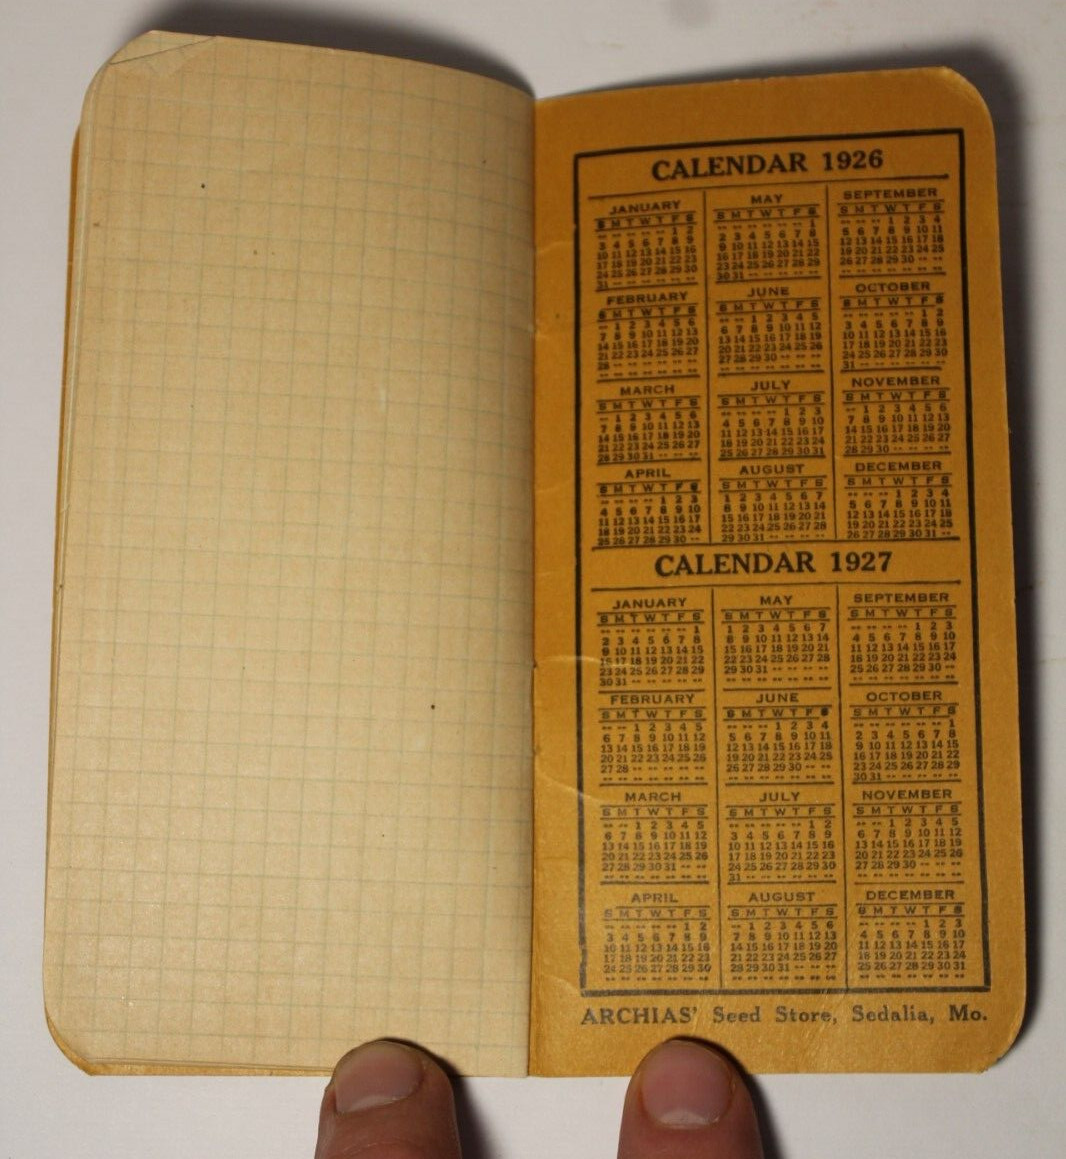 CALENDAR 1926
JANUARY
S M T W T F S
-- -- -- -- -- 1 2
3 4 5 6 7 8 9
10 11 12 13 14 15 16
17 18 19 20 21 22 23
24 25 26 27 28 29 30
31 -- -- -- -- -- --
FEBRUARY
S M T W T F S
-- 1 2 3 4 5 6
7 8 9 10 11 12 13
14 15 16 17 18 19 20
21 22 23 24 25 26 27
28 -- -- -- -- -- --
-- -- -- -- -- -- --
MARCH
S M T W T F S
-- 1 2 3 4 5 6
7 8 9 10 11 12 13
14 15 16 17 18 19 20
21 22 23 24 25 26 27
28 29 30 31 -- -- --
APRIL
S M T W T F S
-- -- -- -- 1 2 3
4 5 6 7 8 9 10
11 12 13 14 15 16 17
18 19 20 21 22 23 24
25 26 27 28 29 30 --
MAY
S M T W T F S
-- -- -- -- -- -- 1
2 3 4 5 6 7 8
9 10 11 12 13 14 15
16 17 18 19 20 21 22
23 24 25 26 27 28 29
30 31 -- -- -- -- --
JUNE
S M T W T F S
-- -- 1 2 3 4 5
6 7 8 9 10 11 12
13 14 15 16 17 18 19
20 21 22 23 24 25 26
27 28 29 30 -- -- --
-- -- -- -- -- -- --
JULY
S M T W T F S
-- -- -- -- 1 2 3
4 5 6 7 8 9 10
11 12 13 14 15 16 17
18 19 20 21 22 23 24
25 26 27 28 29 30 31
AUGUST
S M T W T F S
1 2 3 4 5 6 7
8 9 10 11 12 13 14
15 16 17 18 19 20 21
22 23 24 25 26 27 28
29 30 31 -- -- -- --
SEPTEMBER
S M T W T F S
-- -- -- 1 2 3 4
5 6 7 8 9 10 11
12 13 14 15 16 17 18
19 20 21 22 23 24 25
26 27 28 29 30 -- --
-- -- -- -- -- -- --
OCTOBER
S M T W T F S
-- -- -- -- -- 1 2
3 4 5 6 7 8 9
10 11 12 13 14 15 16
17 18 19 20 21 22 23
24 25 26 27 28 29 30
31 -- -- -- -- -- --
NOVEMBER
S M T W T F S
-- 1 2 3 4 5 6
7 8 9 10 11 12 13
14 15 16 17 18 19 20
21 22 23 24 25 26 27
28 29 30 -- -- -- --
DECEMBER
S M T W T F S
-- -- -- 1 2 3 4
5 6 7 8 9 10 11
12 13 14 15 16 17 18
19 20 21 22 23 24 25
26 27 28 29 30 31 --
CALENDAR 1927
JANUARY
S M T W T F S
-- -- -- -- -- -- 1
2 3 4 5 6 7 8
9 10 11 12 13 14 15
16 17 18 19 20 21 22
23 24 25 26 27 28 29
30 31 -- -- -- -- --
FEBRUARY
S M T W T F S
-- -- 1 2 3 4 5
6 7 8 9 10 11 12
13 14 15 16 17 18 19
20 21 22 23 24 25 26
27 28 -- -- -- -- --
-- -- -- -- -- -- --
MARCH
S M T W T F S
-- -- 1 2 3 4 5
6 7 8 9 10 11 12
13 14 15 16 17 18 19
20 21 22 23 24 25 26
27 28 29 30 31 -- --
-- -- -- -- -- -- --
APRIL
S M T W T F S
-- -- -- -- -- 1 2
3 4 5 6 7 8 9
10 11 12 13 14 15 16
17 18 19 20 21 22 23
24 25 26 27 28 29 30
-- -- -- -- -- -- --
MAY
S M T W T F S
1 2 3 4 5 6 7
8 9 10 11 12 13 14
15 16 17 18 19 20 21
22 23 24 25 26 27 28
29 30 31 -- -- -- --
-- -- -- -- -- -- --
JUNE
S M T W T F S
-- -- -- 1 2 3 4
5 6 7 8 9 10 11
12 13 14 15 16 17 18
19 20 21 22 23 24 25
26 27 28 29 30 -- --
-- -- -- -- -- -- --
JULY
S M T W T F S
-- -- -- -- -- 1 2
3 4 5 6 7 8 9
10 11 12 13 14 15 16
17 18 19 20 21 22 23
24 25 26 27 28 29 30
31 -- -- -- -- -- --
AUGUST
S M T W T F S
-- 1 2 3 4 5 6
7 8 9 10 11 12 13
14 15 16 17 18 19 20
21 22 23 24 25 26 27
28 29 30 31 -- -- --
-- -- -- -- -- -- --
SEPTEMBER
S M T W T F S
-- -- -- -- 1 2 3
4 5 6 7 8 9 10
11 12 13 14 15 16 17
18 19 20 21 22 23 24
25 26 27 28 29 30 --
-- -- -- -- -- -- --
OCTOBER
S M T W T F S
-- -- -- -- -- -- 1
2 3 4 5 6 7 8
9 10 11 12 13 14 15
16 17 18 19 20 21 22
23 24 25 26 27 28 29
30 31 -- -- -- -- --
NOVEMBER
S M T W T F S
-- -- 1 2 3 4 5
6 7 8 9 10 11 12
13 14 15 16 17 18 19
20 21 22 23 24 25 26
27 28 29 30 -- -- --
-- -- -- -- -- -- --
DECEMBER
S M T W T F S
-- -- -- -- 1 2 3
4 5 6 7 8 9 10
11 12 13 14 15 16 17
18 19 20 21 22 23 24
25 26 27 28 29 30 31
-- -- -- -- -- -- --
ARCHIAS' Seed Store, Sedalia, Mo.